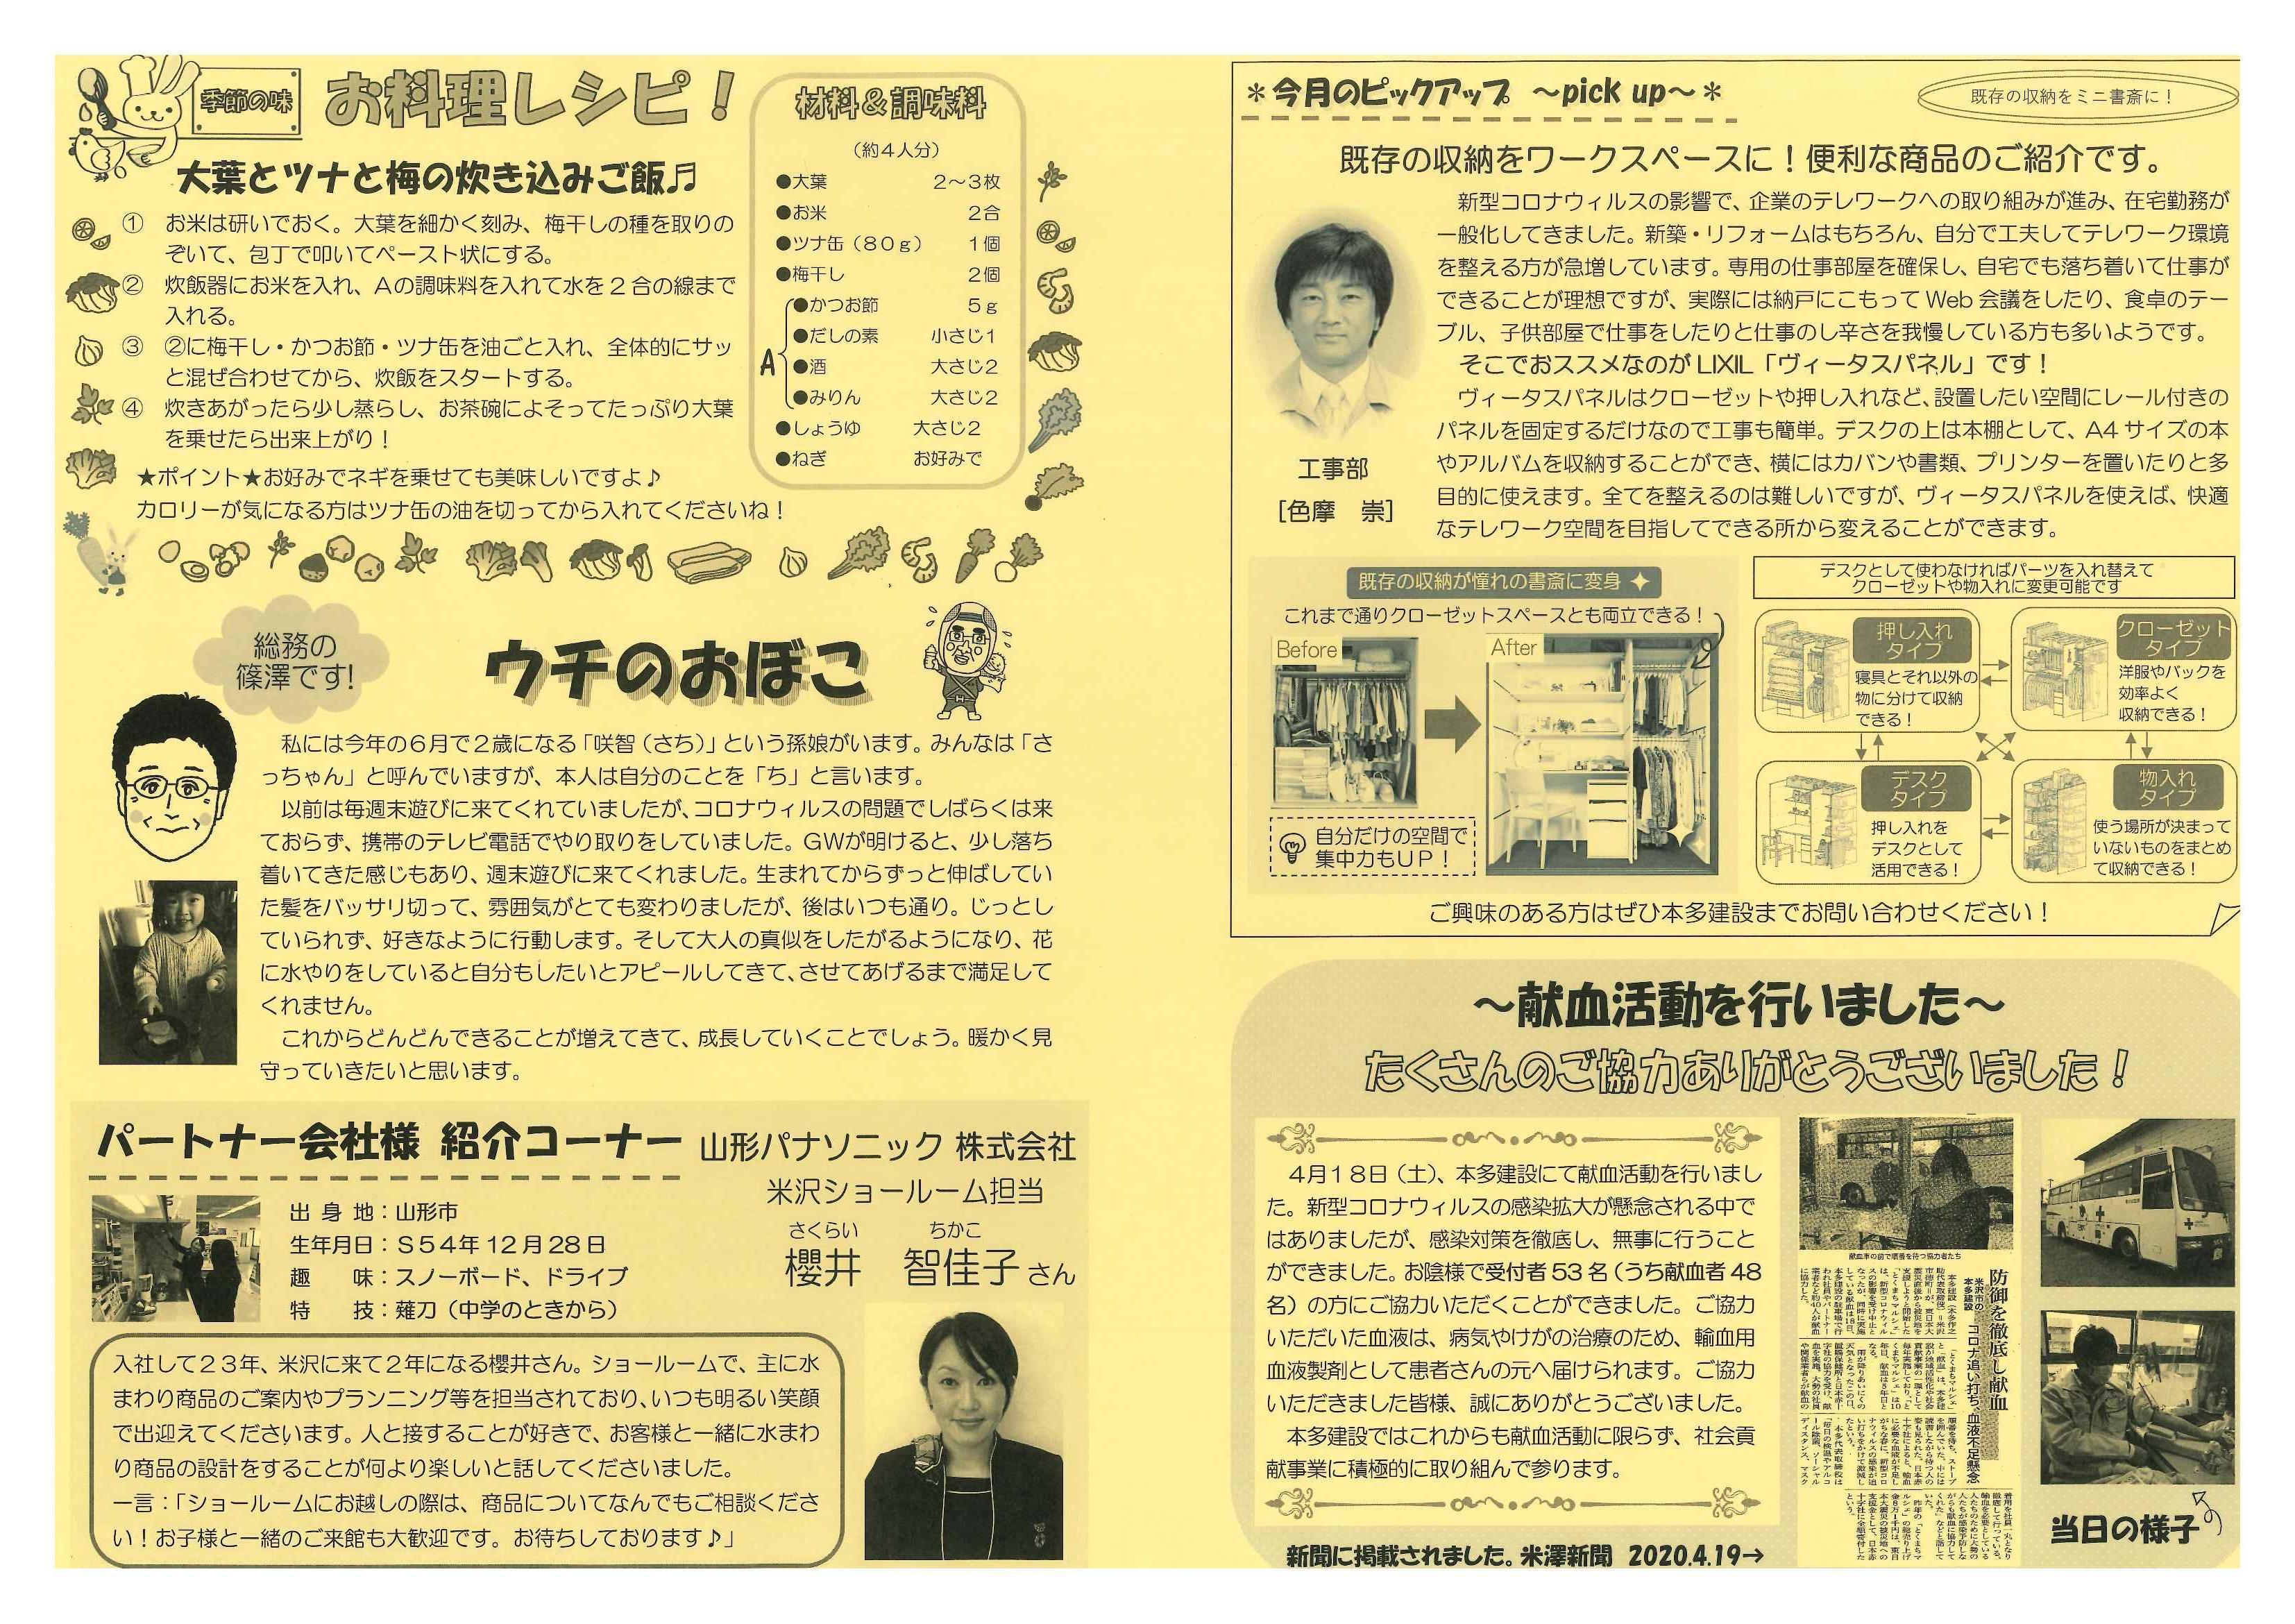 季節の味
お料理レシピ！
大葉とツナと梅の炊き込みご飯♬
① お米は研いでおく。大葉を細かく刻み、梅干しの種を取りの
ぞいて、包丁で叩いてペースト状にする。
② 炊飯器にお米を入れ、Aの調味料を入れて水を２合の線まで
入れる。
③ ②に梅干し・かつお節・ツナ缶を油ごと入れ、全体的にサッ
と混ぜ合わせてから、炊飯をスタートする。
④ 炊きあがったら少し蒸らし、お茶碗によそってたっぷり大葉
を乗せたら出来上がり！
★ポイント★お好みでネギを乗せても美味しいですよ♪
カロリーが気になる方はツナ缶の油を切ってから入れてくださいね！
材料＆調味料
（約４人分）
●大葉 ２～３枚
●お米 ２合
●ツナ缶（８０ｇ） １個
●梅干し ２個
A
●かつお節 ５ｇ
●だしの素 小さじ１
●酒 大さじ２
●みりん 大さじ２
●しょうゆ 大さじ２
●ねぎ お好みで
総務の
篠澤です！
ウチのおぼこ
私には今年の６月で２歳になる「咲智（さち）」という孫娘がいます。みんなは「さ
っちゃん」と呼んでいますが、本人は自分のことを「ち」と言います。
以前は毎週末遊びに来てくれていましたが、コロナウィルスの問題でしばらくは来
ておらず、携帯のテレビ電話でやり取りをしていました。GWが明けると、少し落ち
着いてきた感じもあり、週末遊びに来てくれました。生まれてからずっと伸ばしてい
た髪をバッサリ切って、雰囲気がとても変わりましたが、後はいつも通り。じっとし
ていられず、好きなように行動します。そして大人の真似をしたがるようになり、花
に水やりをしていると自分もしたいとアピールしてきて、させてあげるまで満足して
くれません。
これからどんどんできることが増えてきて、成長していくことでしょう。暖かく見
守っていきたいと思います。
パートナー会社様 紹介コーナー
山形パナソニック 株式会社
米沢ショールーム担当
さくらい ちかこ
櫻井 智佳子さん
出身地：山形市
生年月日：Ｓ５４年12月28日
趣味：スノーボード、ドライブ
特技：薙刀（中学のときから）
入社して２３年、米沢に来て２年になる櫻井さん。ショールームで、主に水
まわり商品のご案内やプランニング等を担当されており、いつも明るい笑顔
で出迎えてくださいます。人と接することが好きで、お客様と一緒に水まわ
り商品の設計をすることが何より楽しいと話してくださいました。
一言：「ショールームにお越しの際は、商品についてなんでもご相談くださ
い！お子様と一緒のご来館も大歓迎です。お待ちしております♪」
＊今月のピックアップ ～pick up～＊
既存の収納をミニ書斎に！
既存の収納をワークスペースに！便利な商品のご紹介です。
新型コロナウィルスの影響で、企業のテレワークへの取り組みが進み、在宅勤務が
一般化してきました。新築・リフォームはもちろん、自分で工夫してテレワーク環境
を整える方が急増しています。専用の仕事部屋を確保し、自宅でも落ち着いて仕事が
できることが理想ですが、実際には納戸にこもってWeb会議をしたり、食卓のテー
ブル、子供部屋で仕事をしたりと仕事のし辛さを我慢している方も多いようです。
そこでおススメなのがLIXIL「ヴィータスパネル」です！
ヴィータスパネルはクローゼットや押し入れなど、設置したい空間にレール付きの
パネルを固定するだけなので工事も簡単。デスクの上は本棚として、A4サイズの本
やアルバムを収納することができ、横にはカバンや書類、プリンターを置いたりと多
目的に使えます。全てを整えるのは難しいですが、ヴィータスパネルを使えば、快適
なテレワーク空間を目指してできる所から変えることができます。
工事部
[色摩 崇]
既存の収納が憧れの書斎に変身
これまで通りクローゼットスペースとも両立できる！
Before
After
自分だけの空間で
集中力もＵＰ！
デスクとして使わなければパーツを入れ替えて
クローゼットや物入れに変更可能です
押し入れ
タイプ
寝具とそれ以外の
物に分けて収納
できる！
クローゼット
タイプ
洋服やバックを
効率よく
収納できる！
デスク
タイプ
押し入れを
デスクとして
活用できる！
物入れ
タイプ
使う場所が決まって
いないものをまとめ
て収納できる！
ご興味のある方はぜひ本多建設までお問い合わせください！
～献血活動を行いました～
たくさんのご協力ありがとうございました！
４月１８日（土）、本多建設にて献血活動を行いまし
た。新型コロナウィルスの感染拡大が懸念される中で
はありましたが、感染対策を徹底し、無事に行うこと
ができました。お陰様で受付者53名（うち献血者48
名）の方にご協力いただくことができました。ご協力
いただいた血液は、病気やけがの治療のため、輸血用
血液製剤として患者さんの元へ届けられます。ご協力
いただきました皆様、誠にありがとうございました。
本多建設ではこれからも献血活動に限らず、社会貢
献事業に積極的に取り組んで参ります。
新聞に掲載されました。米澤新聞 2020.4.19→
献血車の前で順番を待つ協力者たち
防御を徹底し献血
米沢市の本多建設
コロナ追い打ち、血液不足懸念
当日の様子